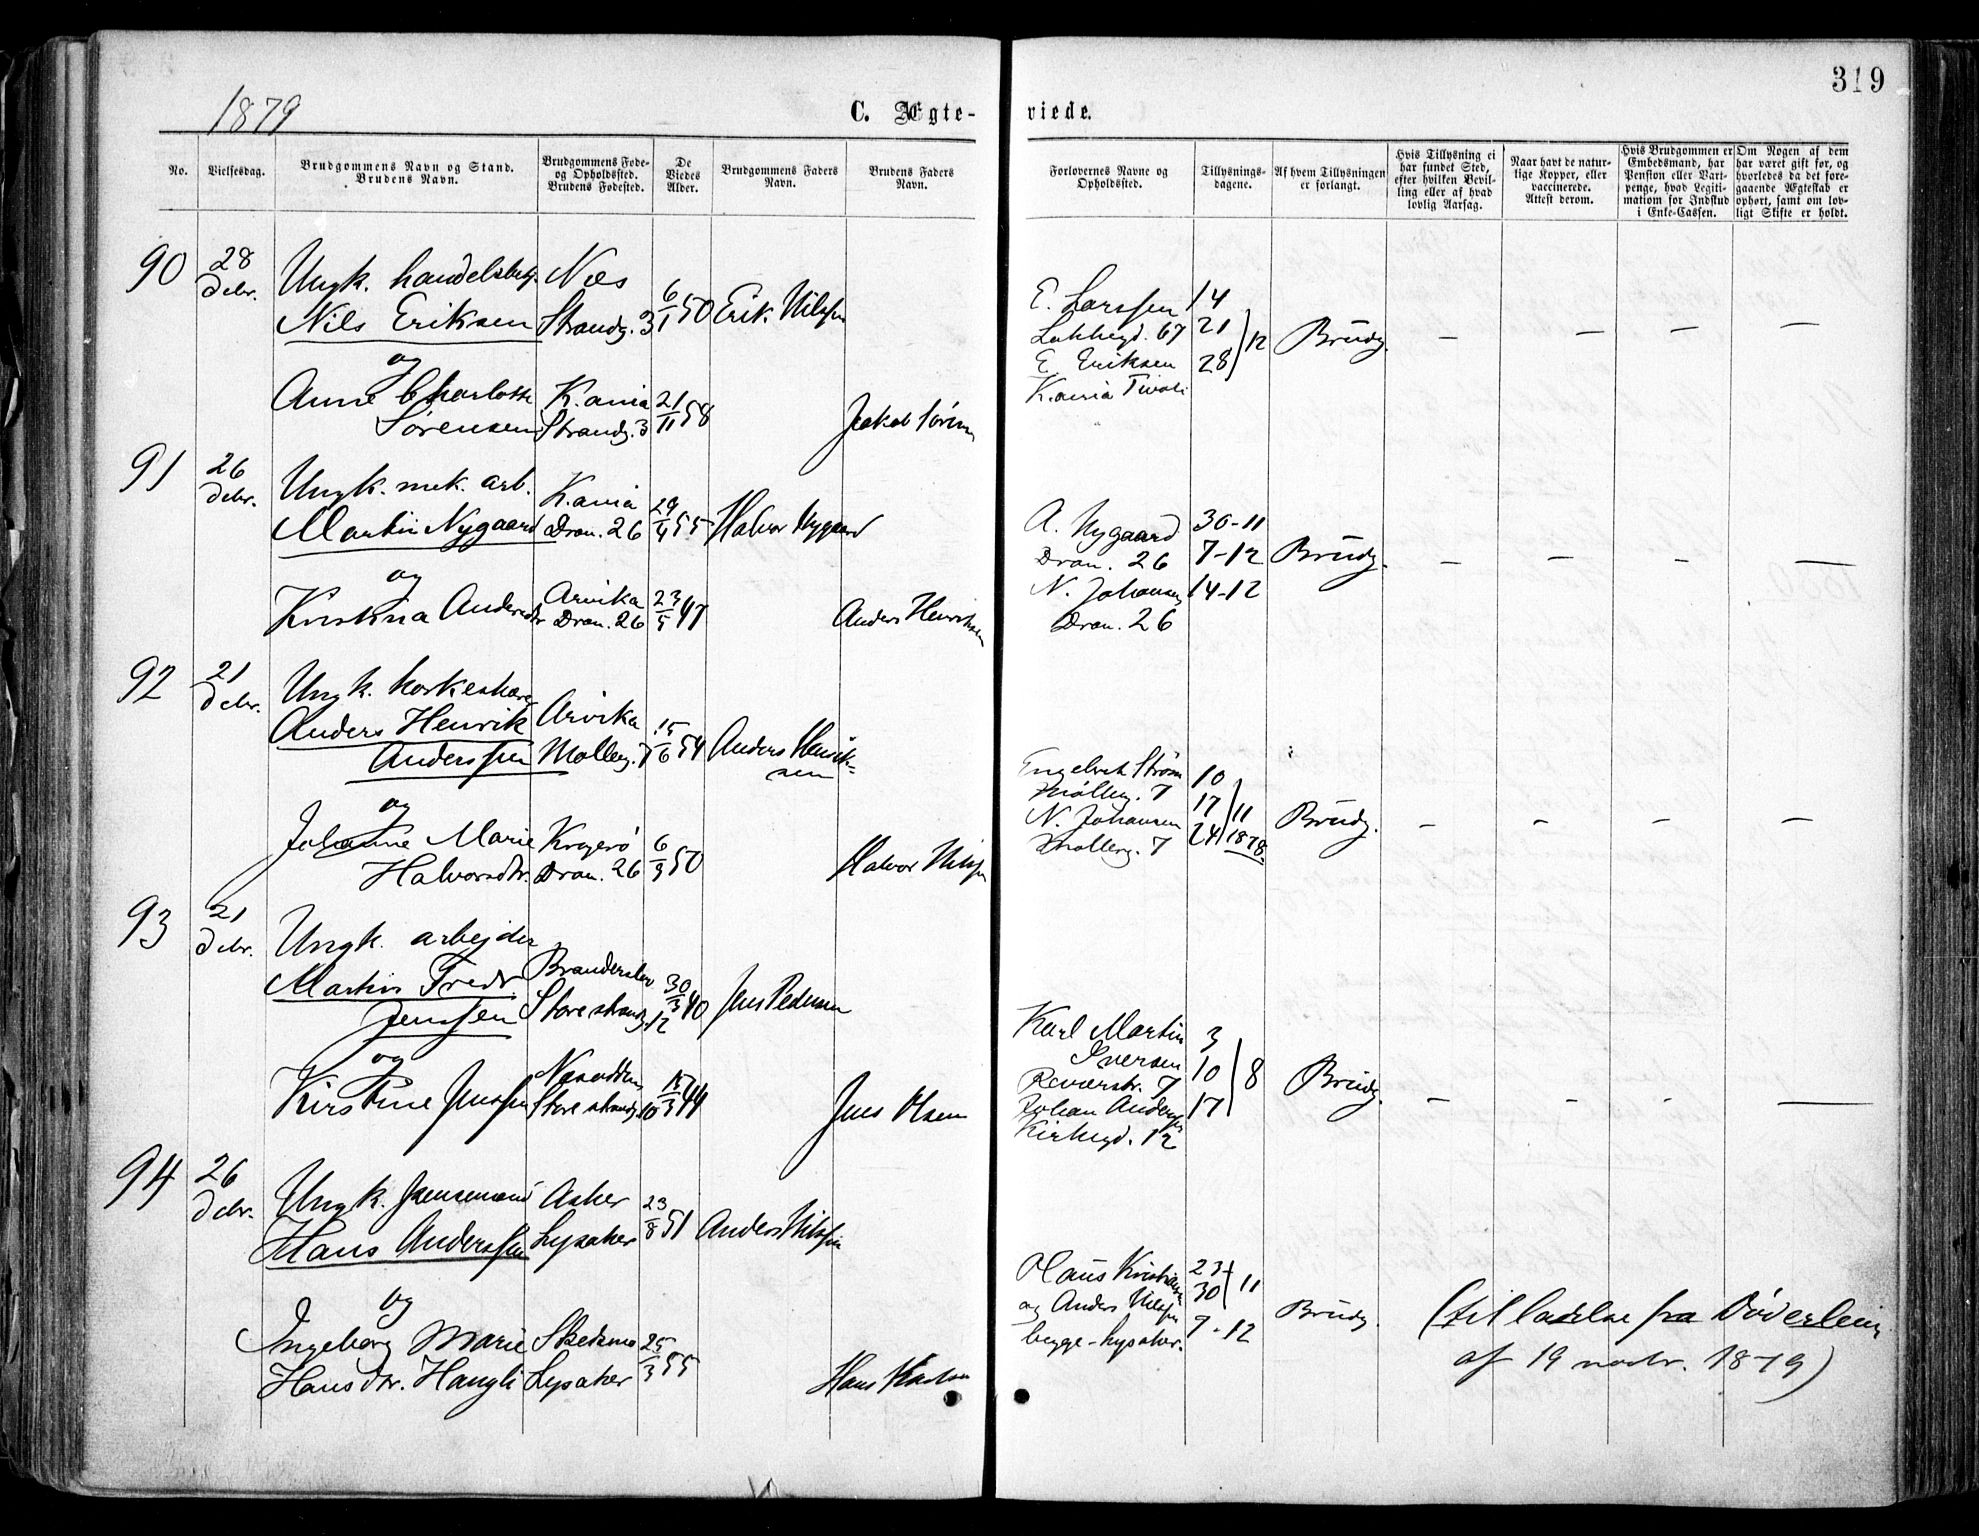 319
1879
C. Ægte-
viede.
No.
Vielsesdag.
Brudgommens Navn og Stand.
Brudens Navn.
Brudgommens Føde-
og Opholdsted.
Brudens Fødested.
De
Viedes
Alder.
Brudgommens Faders
Navn.
Brudens Faders
Navn.
Forlovernes Navne og
Opholdsted.
Tillysnings-
dagene.
Af hvem Tillysningen
er forlangt.
Hvis Tillysning ei
har fundet Sted,
efter hvilken Bevil-
ling eller af hvad
lovlig Aarsag.
Naar havt de natur-
lige Kopper, eller
vaccinerede.
Attest derom.
Hvis Brudgommen er
Embedsmand, har
Pension eller Vart-
penge, hvad Legiti-
mation for Indskud
i Enke-Cassen.
Om Nogen af dem
har været gift før, og
hvorledes da det fore-
gaaende Ægteskab er
ophørt, samt om lov-
ligt Skifte er holdt.
90
28
Debr.
Ungk. handelsbetj.
Nils Eriksen
og
Anne Charlotte
Sørensen
Næs
Strandg. 3
K.ania
Strandg. 3
6/1 50
21/11 58
Erik Nilssen
Jakob Sørensen
E. Larssen
Lakkegd. 67
E. Eriksen
K.ania Tivoli
14
21
28
12
Brudg.
91
26
Debr.
Ungk. mek. arb.
Martin Nygaard
og
Kristina Andersdtr
K.ania
Dron. 26
Arvika
Dron. 26
29/4 55
23/5 47
Halvor Nygaard
Anders Henriksen
A. Nygaard
Dron. 26
N. Johansen
Dron. 26
30-11
7-12
14-12
Brudg.
92
21
Debr.
Ungk. korkeskærer
Anders Henrik
Anderssen
og
Johanne Marie
Halvorsdtr.
Arvika
Møllerg. 7
Kragerø
Dron. 26
15/6 54
6/9 50
Anders Henrik-
sen
Halvor Nilssen
Engelbret Strøm
Møllerg. 7
N. Johansen
Møllerg. 7
10
17
24
11
1878.
Brudg.
93
21
Debr.
Ungk. arbejder
Martin Fredr.
Jenssen
og
Kirstine Jenssen
Storestrandg. 12
Nesodden
Storestrandg. 10
30/3 40
15/3 44
Jens Pedersen
Jens Olsen
Karl Martin
Iversen
Reverstr. 7
Johan Anderssen
Kirkegd. 12
3
10
17
8
Brudg.
94
26
Debr.
Ungk.
Hans Anderssen
og
Ingeborg Marie
Hansdtr. Haugli
Asker
Lysaker
Skedsmo
Lysaker
23/8 51
25/3 55
Anders Nilssen
Hans
Hans Kristiansen
og Anders Nilssen
begge Lysaker.
23
30
11
7-12
Brudg.
(tilladelse fra Døderlein
af 19 novbr. 1879)